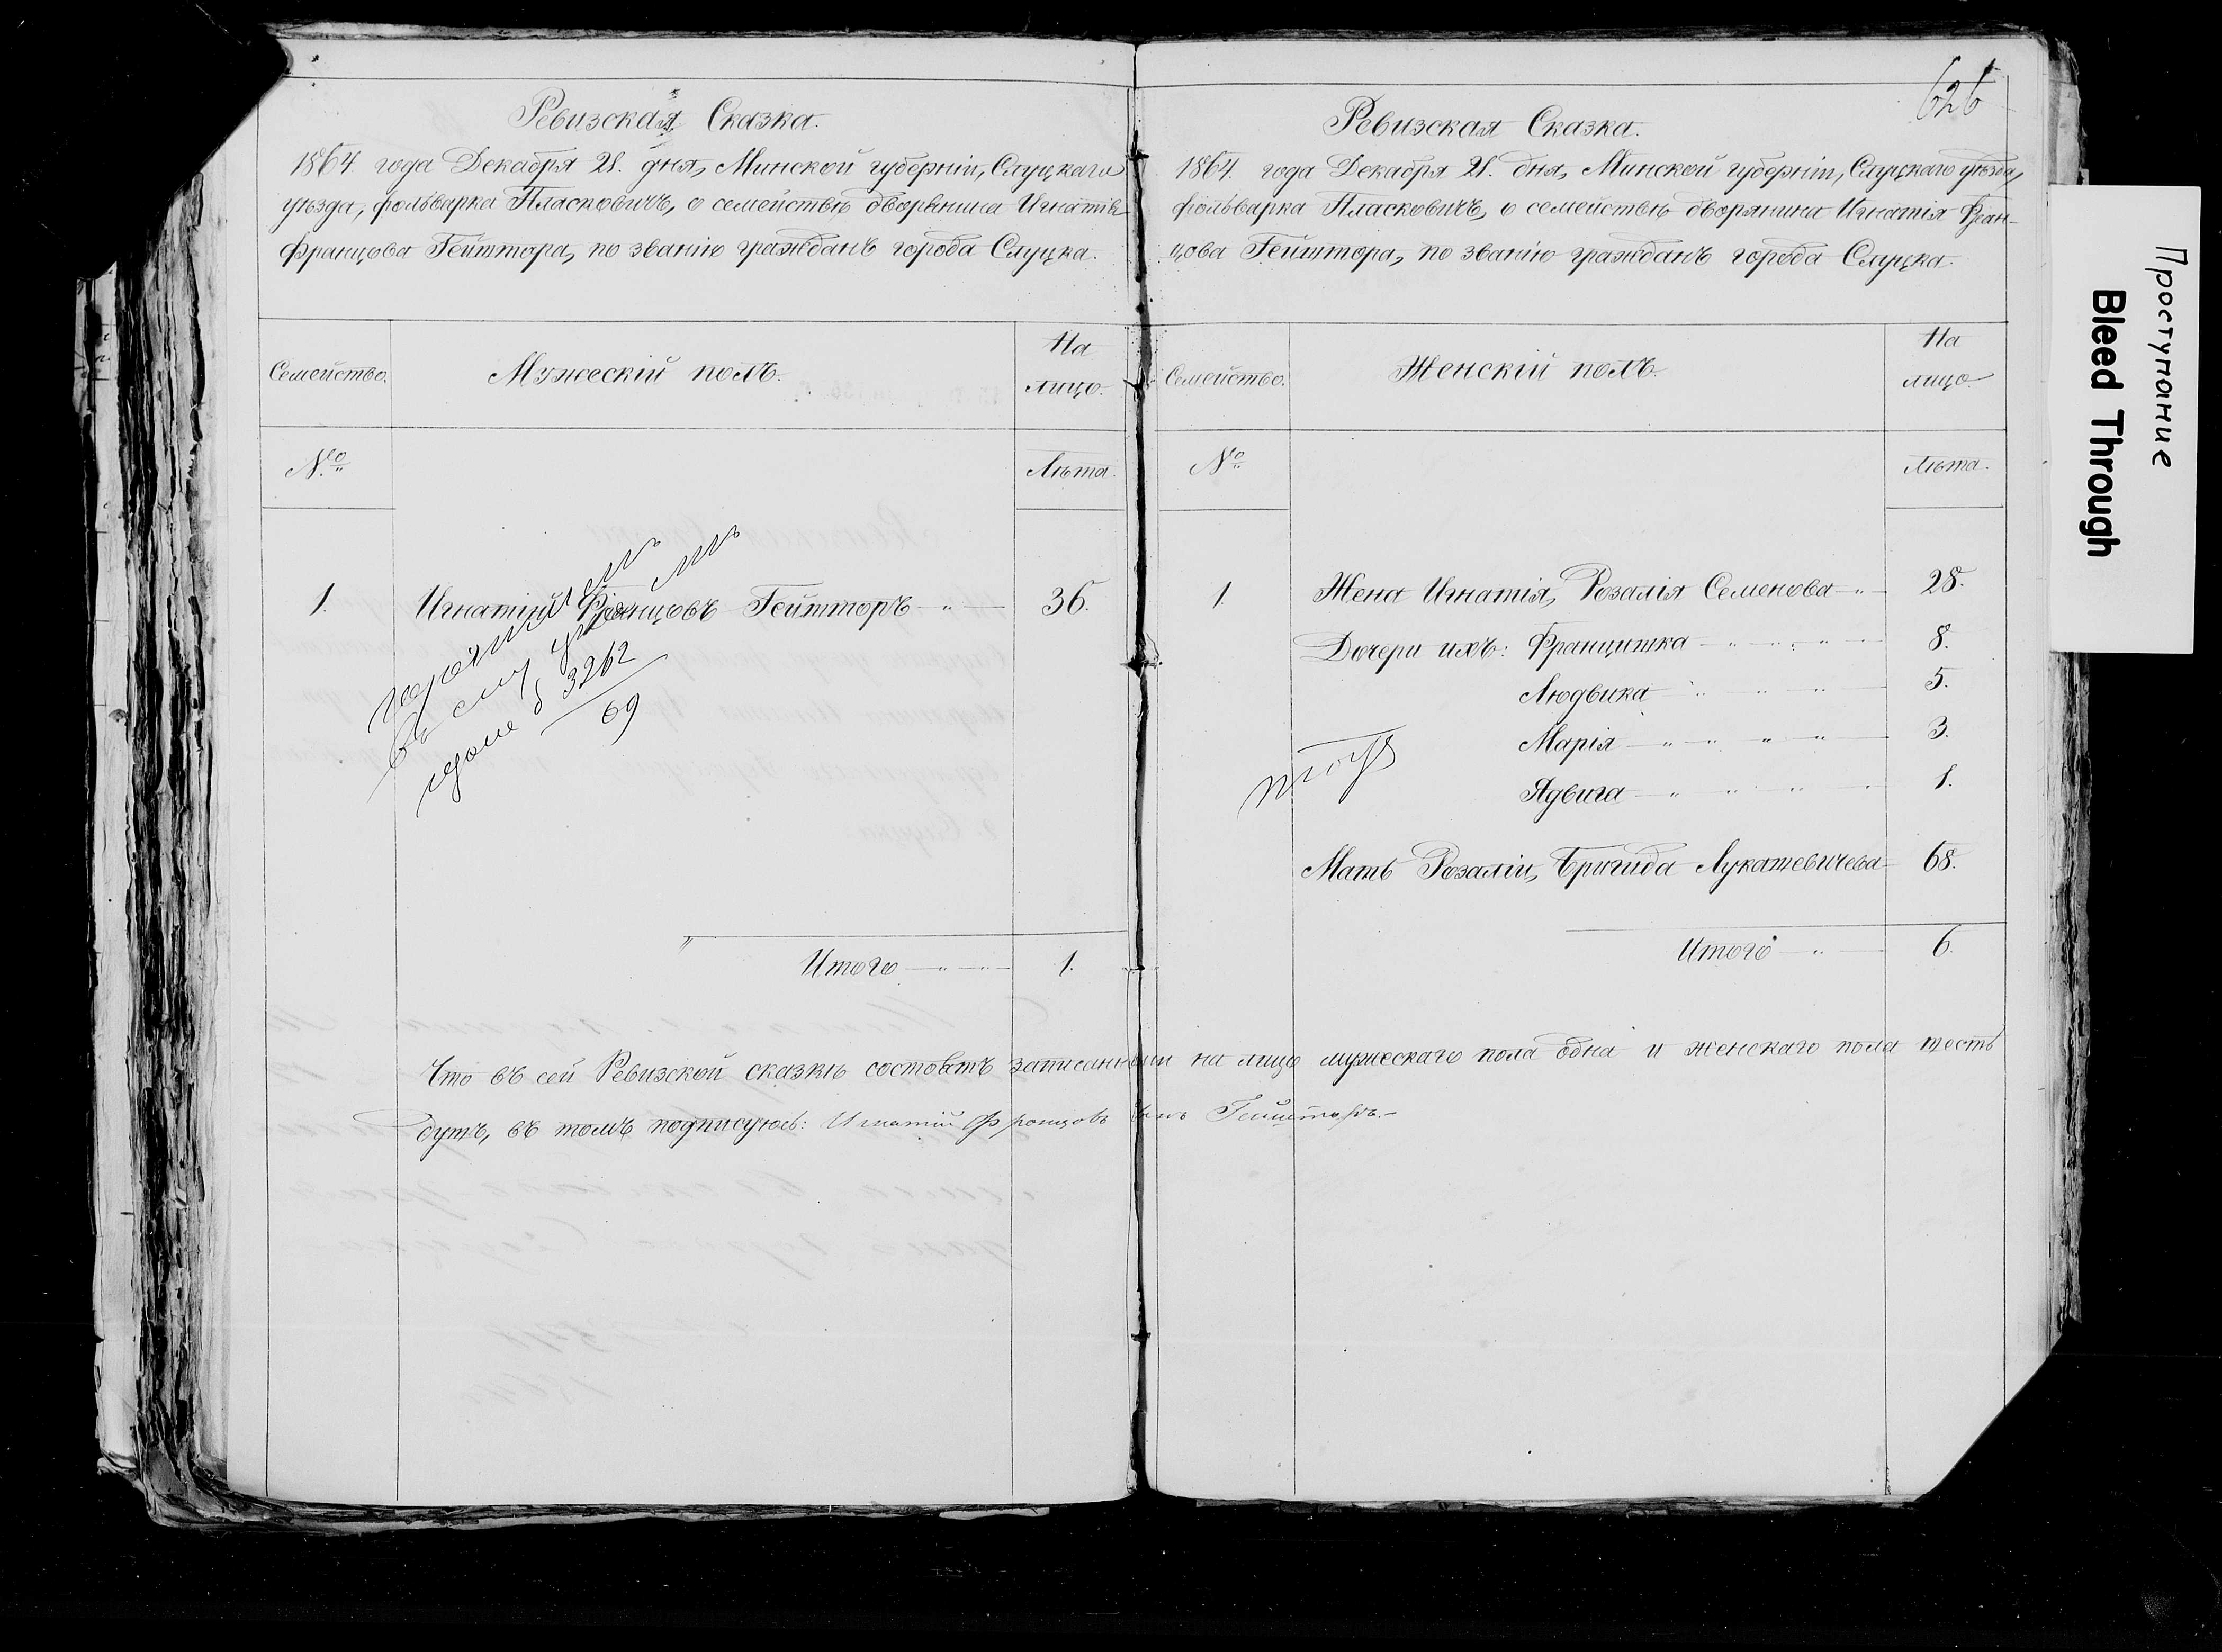 Ревизская Сказка.
1864. года Декабря 21. дня, Минской губерніи, Слуцкаго
уѣзда, фольварка Пласковичъ, о семействѣ дворянина Игнатія
Францова Гейштора, по званію гражданъ города Слуцка.
Семейство.
Мужескій полъ.
На
лицо.
№
Лѣта.
1.
Игнатій Францовъ Гейшторъ
36.
3262
69
Итого
1.
626
Ревизская Сказка.
1864. года Декабря 21. дня, Минской губерніи, Слуцкаго уѣзда,
фольварка Пласковичъ, о семействѣ дворянина Игнатія Фран-
цова Гейштора, по званію гражданъ города Слуцка.
Семейство.
Женскій полъ.
На
лицо.
№
Лѣта.
1.
Жена Игнатія, Розалія Семенова
28.
Дочери ихъ: Францишка
8.
Людвика
5.
Марія
3.
Ядвига
1.
Мать Розаліи, Бригида Лукашевичева
68.
Итого
6.
Что въ сей Ревизской сказкѣ состоитъ записанными на лицо мужескаго пола одна и женскаго пола шесть
душъ, въ томъ подписуюсь: Игнатій Францовъ сынъ Гейшторъ.
Проступание
Bleed Through